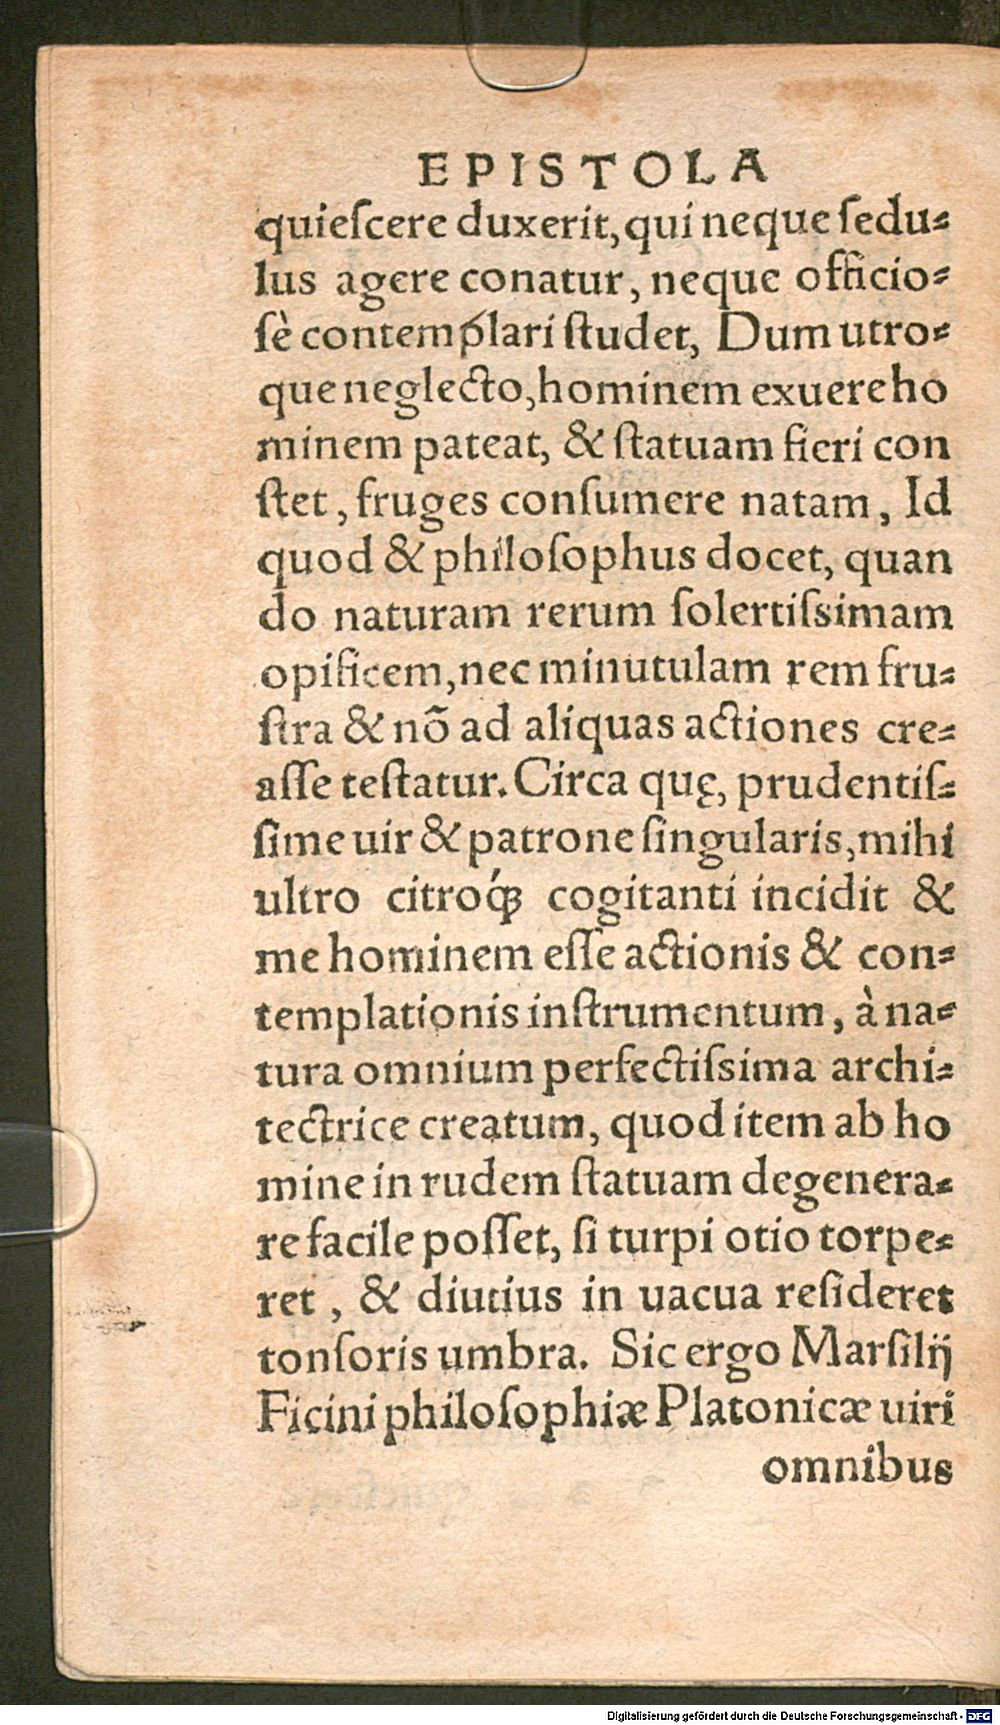 EPISTOLA
quieſcere duxerit, qui neque ſedu⸗
lus agere conatur, neque officio⸗
ſè contemplari ſtudet, Dum utro⸗
que neglecto, hominem exuere ho
minem pateat, & ſtatuam fieri con
ſtet, fruges conſumere natam, Id
quod & philoſophus docet, quan
do naturam rerum ſolertiſsimam
opificem, nec minutulam rem fru⸗
ſtra & nō ad aliquas actiones cre⸗
aſſe teſtatur. Circa quę, prudentiſ⸗
ſime uir & patrone ſingularis, mihi
ultro citroq́ꝫ cogitanti incidit &
me hominem eſſe actionis & con⸗
templationis inſtrumentum, à na⸗
tura omnium perfectiſsima archi⸗
tectrice creatum, quod item ab ho
mine in rudem ſtatuam degenera⸗
re facile poſſet, ſi turpi otio torpe⸗
ret, & diutius in uacua reſideret
tonſoris umbra. Sic ergo Marſilij
Ficini philoſophiæ Platonicæ uiri
omnibus
Digitalisierung gefördert durch die Deutsche Forschungsgemeinschaft - DFG